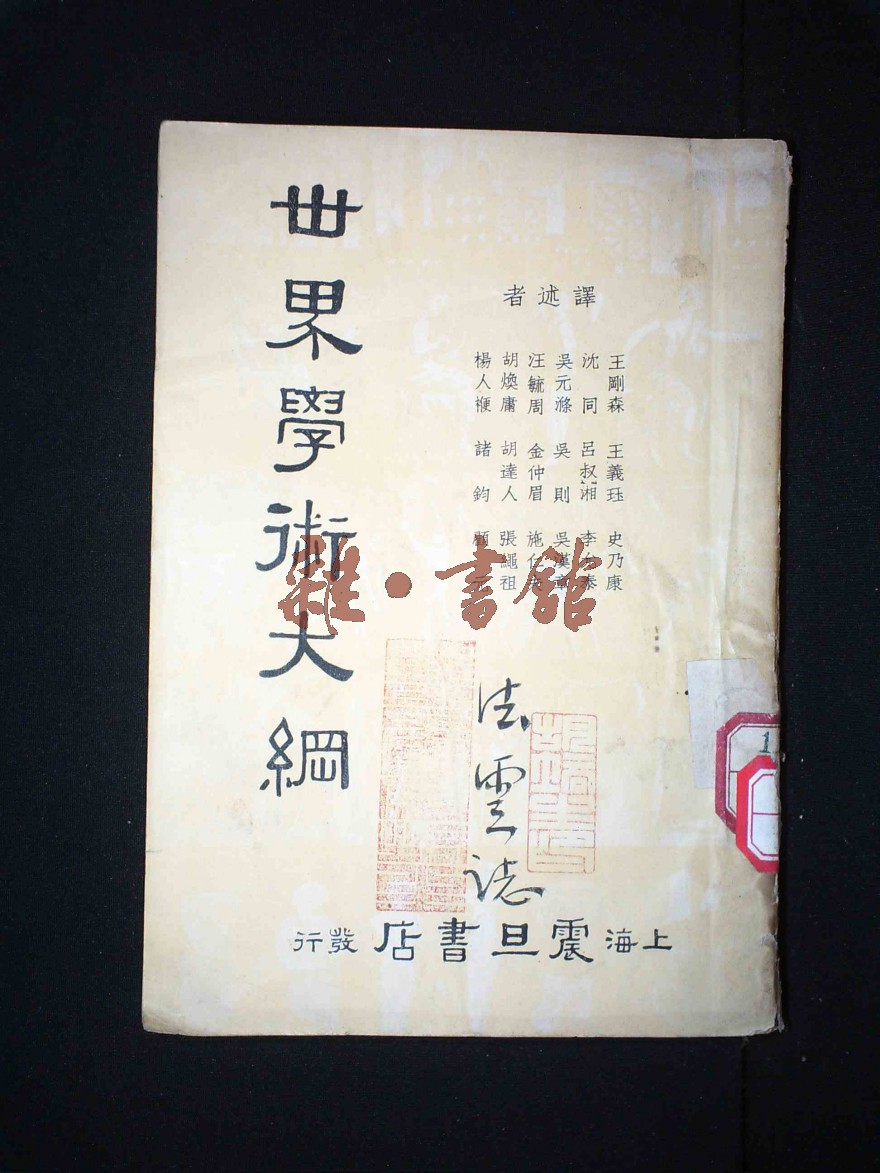 世界學術大綱
譯述者
王剛森 王義玨 史乃康
沈同 呂叔湘 李泰
吳元滌 吳則 吳漢章
汪毓周 金仲眉 施仁
胡煥庸 胡達人 張繩祖
楊人楩 諸鈞 顧
雜·書館
法雲誌
上海震旦書店發行
1